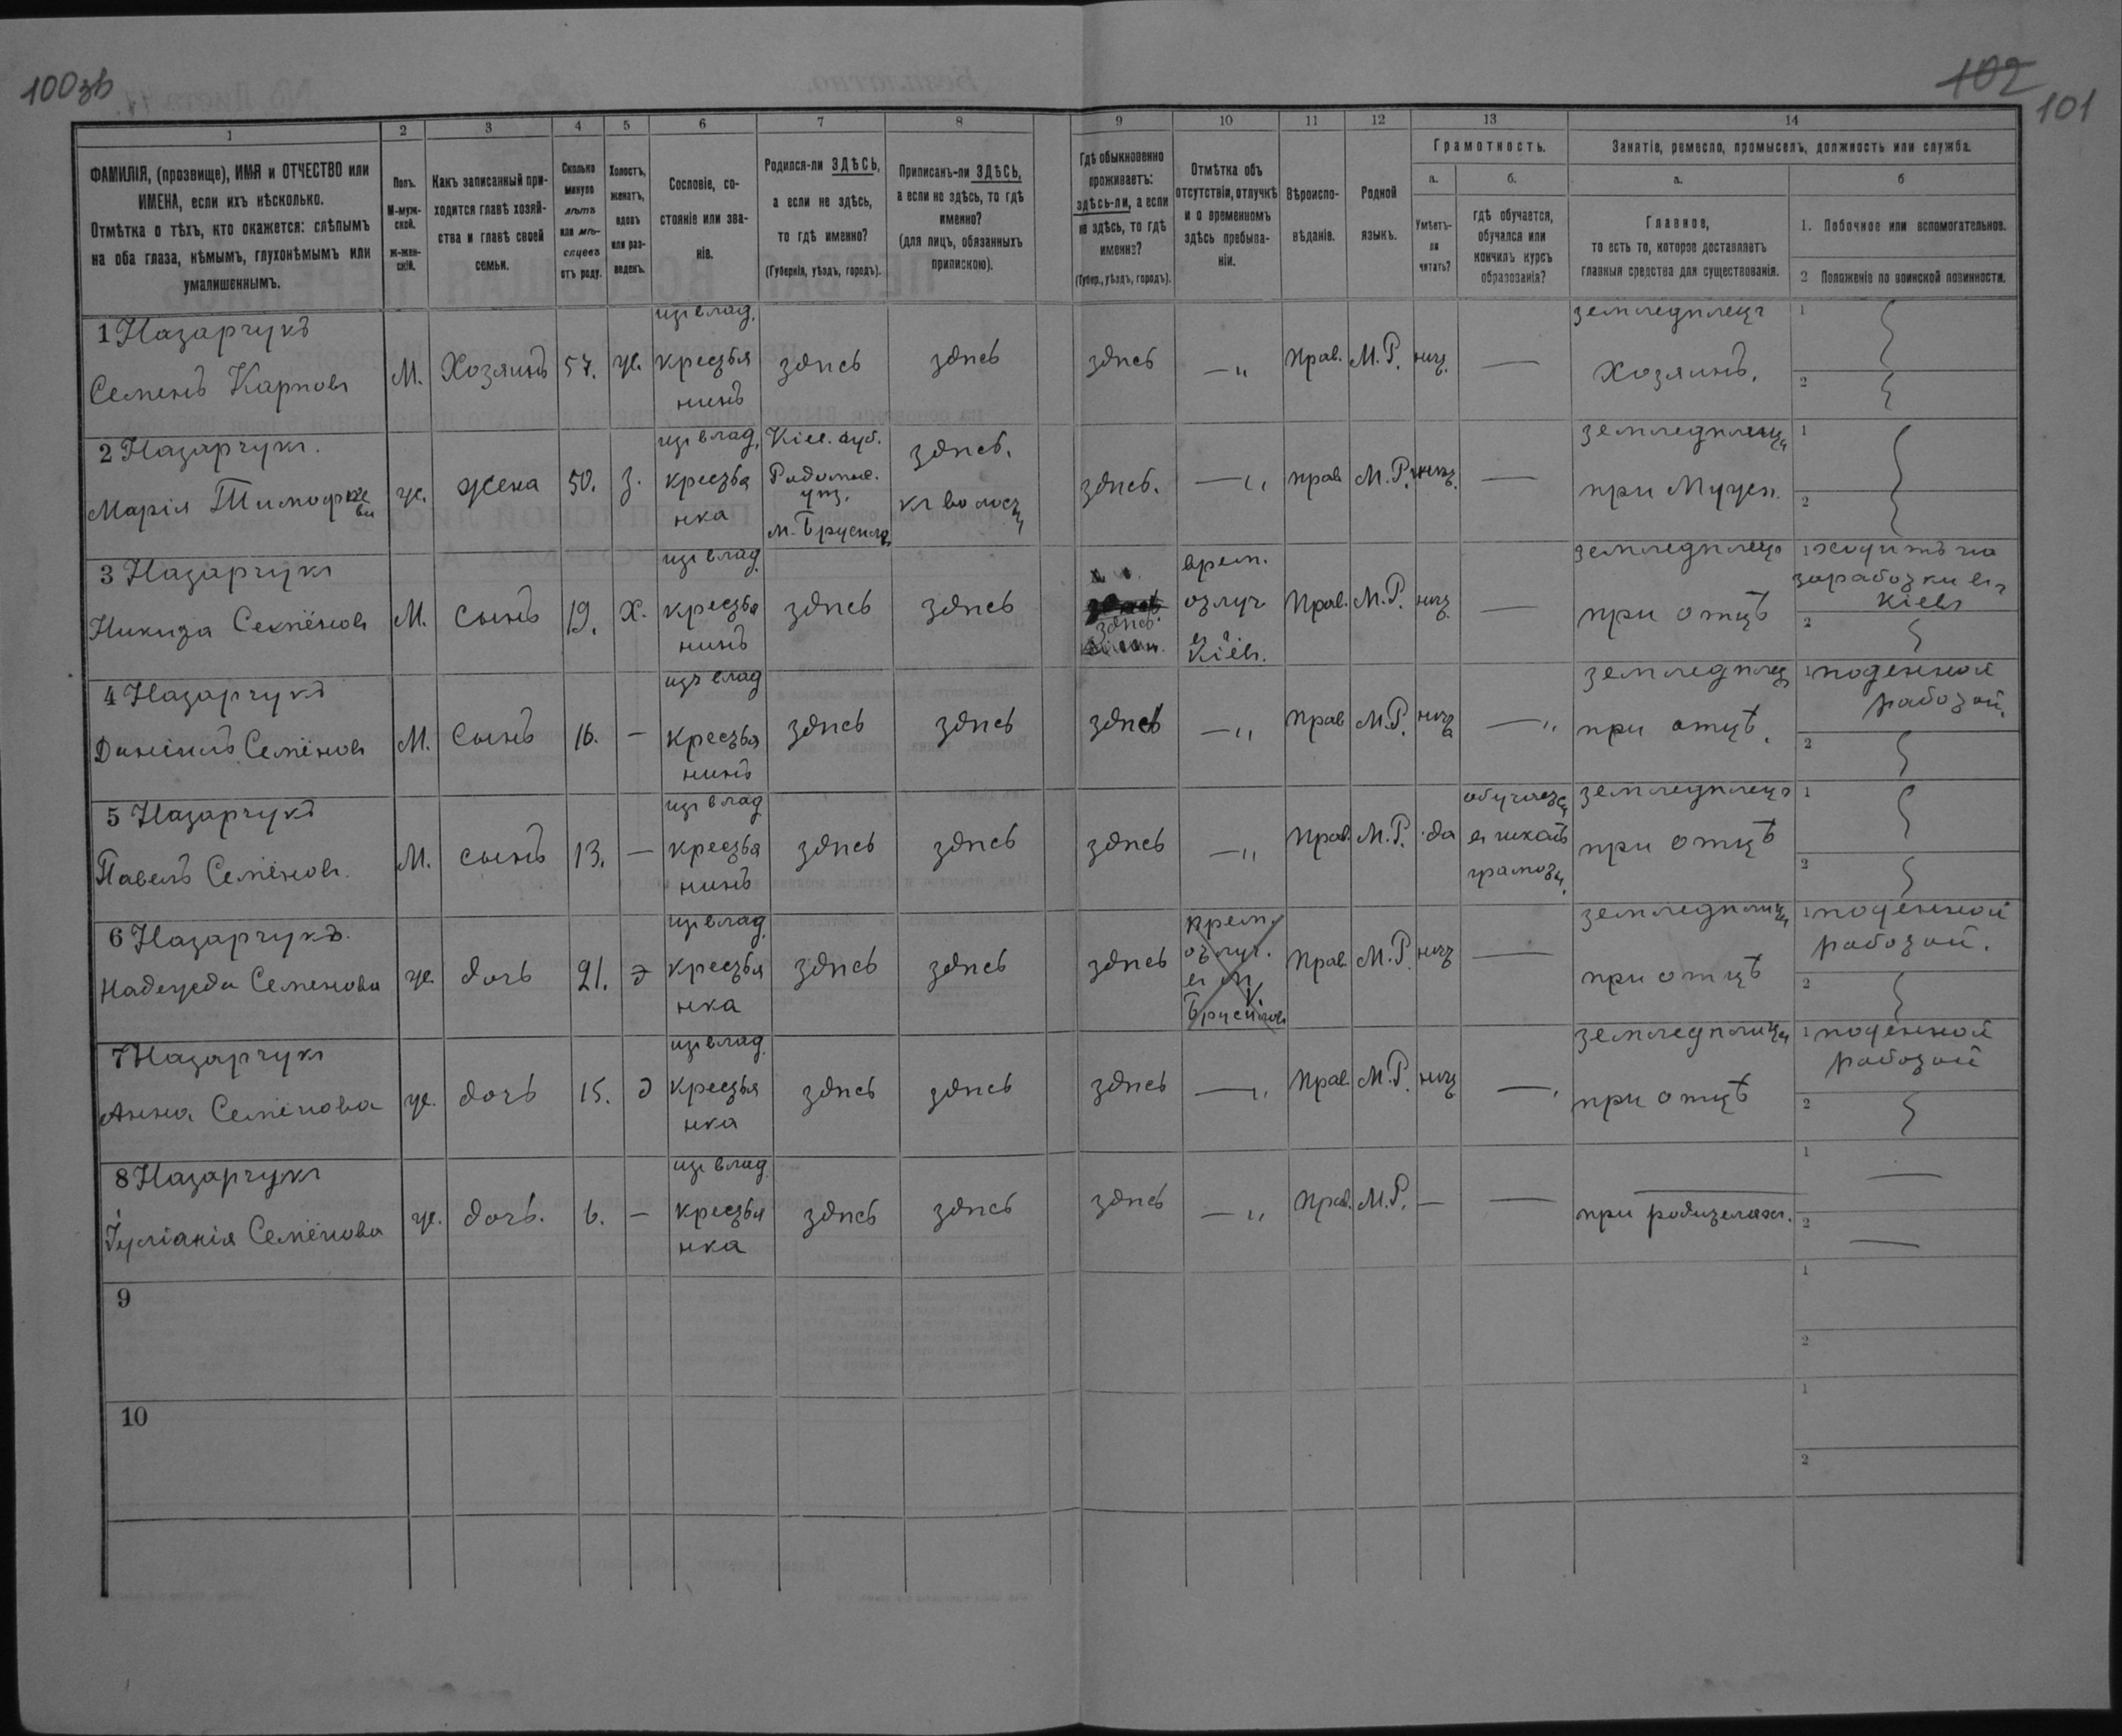 100зв
102
101
1
2
3
4
5
6
7
8
9
10
11
12
13
14
ФАМИЛІЯ, (прозвище), ИМЯ и ОТЧЕСТВО или
ИМЕНА, если ихъ нѣсколько.
Отмѣтка о тѣхъ, кто окажется: слѣпымъ
на оба глаза, нѣмымъ, глухонѣмымъ или
умалишеннымъ.
Полъ.
М-муж-
ской.
Ж-жен-
скій.
Какъ записанный при-
ходится главѣ хозяй-
ства и главѣ своей
семьи.
Сколько
минуло
лѣтъ
или мѣ-
сяцевъ
отъ роду.
Холостъ,
женатъ,
вдовъ
или раз-
веденъ.
Сословіе, со-
стояніе или зва-
ніе.
Родился-ли ЗДѢСЬ,
а если не здѣсь,
то гдѣ именно?
(Губернія, уѣздъ, городъ).
Приписанъ-ли ЗДѢСЬ,
а если не здѣсь, то гдѣ
именно?
(для лицъ, обязанныхъ
припискою).
Гдѣ обыкновенно
проживаетъ:
здѣсь-ли, а если
не здѣсь, то гдѣ
именно?
(Губер., уѣздъ, городъ).
Отмѣтка объ
отсутствіи, отлучкѣ
и о временномъ
здѣсь пребыва-
ніи.
Вѣроиспо-
вѣданіе.
Родной
языкъ.
Грамотность.
а.
Умѣетъ-
ли
читать?
б.
гдѣ обучается,
обучался или
кончилъ курсъ
образованія?
Занятіе, ремесло, промыселъ, должность или служба.
а.
Главное,
то есть то, которое доставляетъ
главныя средства для существованія.
б
1. Побочное или вспомогательное.
2 Положеніе по воинской повинности.
1 Назарчукъ
Семенъ Карповъ
М. Хозяинъ 57. ж.
изъ влад.
крестья
нинъ
здѣсь здѣсь здѣсь —„ Прав. М.Р. нѣтъ. —
земледѣлецъ
Хозяинъ.
1
2
2 Назарчукъ.
Марія Тимофѣе
ва
ж. жена 50. з.
изъ влад.
крестья
нка
Кіев. губ.
Радомыс.
уѣз.
м. Брусило
здѣсь.
къ волости
здѣсь. —„ прав М.Р. нѣтъ. —
земледѣлица
при мужѣ.
1
2
3 Назарчукъ
Никита Семёновъ
М. Сынъ 19. Х.
изъ влад.
крестья
нинъ
здѣсь здѣсь
здѣсь.
врем.
отлуч
въ
Кіевъ.
Прав. М.Р. нѣтъ —
земледѣлецъ
при отцѣ
1 ходитъ на
заработки въ
Кіевъ
2
4 Назарчукъ
Даніилъ Семёновъ
М. Сынъ 16. —
изъ влад
крестья
нинъ
здѣсь здѣсь здѣсь —„ Прав М.Р. нѣтъ —„
земледѣлец
при отцѣ.
1 поденной
работой.
2
5 Назарчукъ
Павелъ Семёновъ.
М. сынъ 13. —
изъ влад
крестья
нинъ
здѣсь здѣсь здѣсь —„ Прав. М.Р. да
обучается
въ школѣ
грамоты.
земледѣлецъ
при отцѣ
1
2
6 Назарчукъ.
Надежда Семенова
ж. дочь 21. д
изъ влад.
крестья
нка
здѣсь здѣсь здѣсь
врем.
отлуч.
въ м.
Брусиловъ
Прав М.Р. нѣтъ —
земледѣлица
при отцѣ
1 поденной
работой.
2
7 Назарчукъ
Анна Семёнова
ж. дочь 15. д
изъ влад.
крестья
нка
здѣсь здѣсь здѣсь —„ Прав М.Р. нѣтъ —„
земледѣлица
при отцѣ
1 поденной
работой
2
8 Назарчукъ
Іуліанія Семёнова
ж. дочь. 6. —
изъ влад.
крестья
нка
здѣсь здѣсь здѣсь —„ Прав. М.Р. — —
при родителяхъ.
1 —
2 —
9
1
2
10
1
2